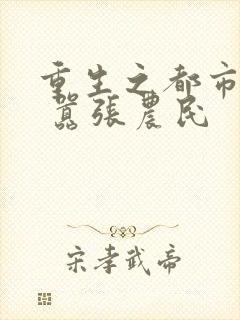 重生之都市
嚣張農民
宋孝武帝